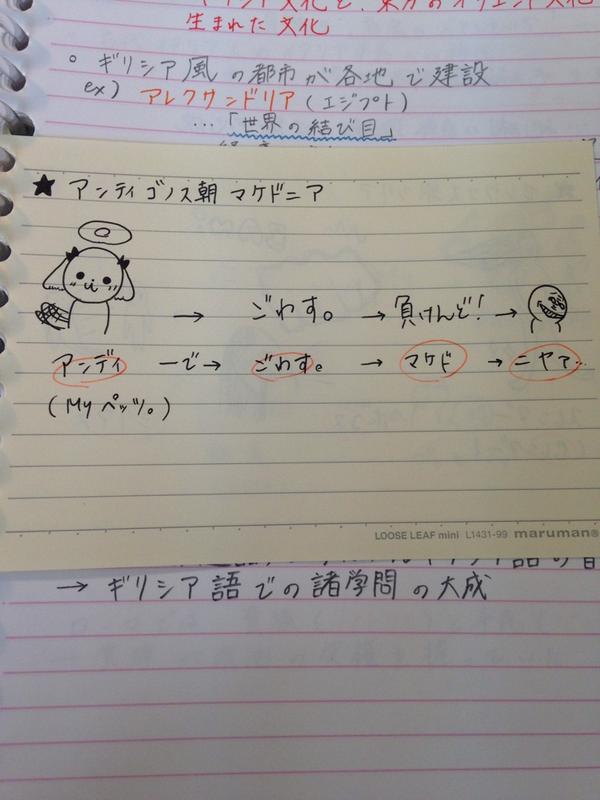 生まれた文化
○ ギリシア風の都市が各地で建設
ex) アレクサンドリア (エジプト)
…「世界の結び目」
★ アンティゴノス朝 マケドニア
→ ごわす。 → 負けんど! →
アンディ ーで→ ごわす。 → マケド → ニヤァ…
(My ペッツ。)
LOOSE LEAF mini L1431-99 maruman®
→ ギリシア語での諸学問の大成